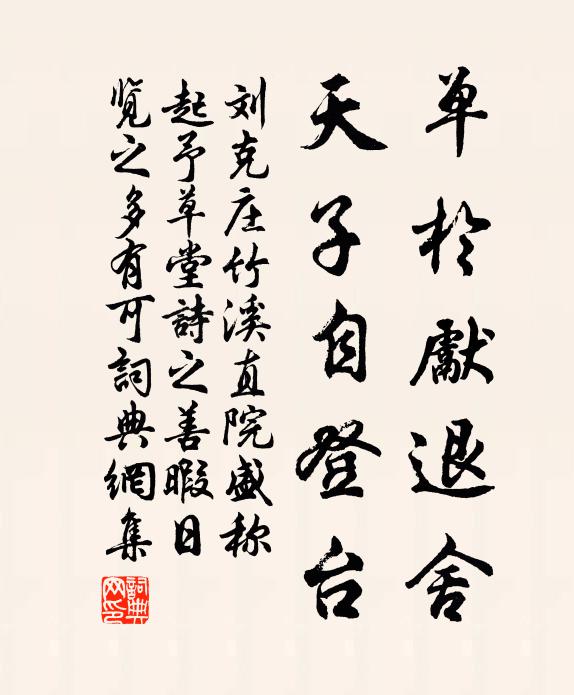 单於獻退舍
天子自登台
刘克庄竹溪直院盛称
起予草堂詩之善暇日
览之多有可詞典網集
詞典网印